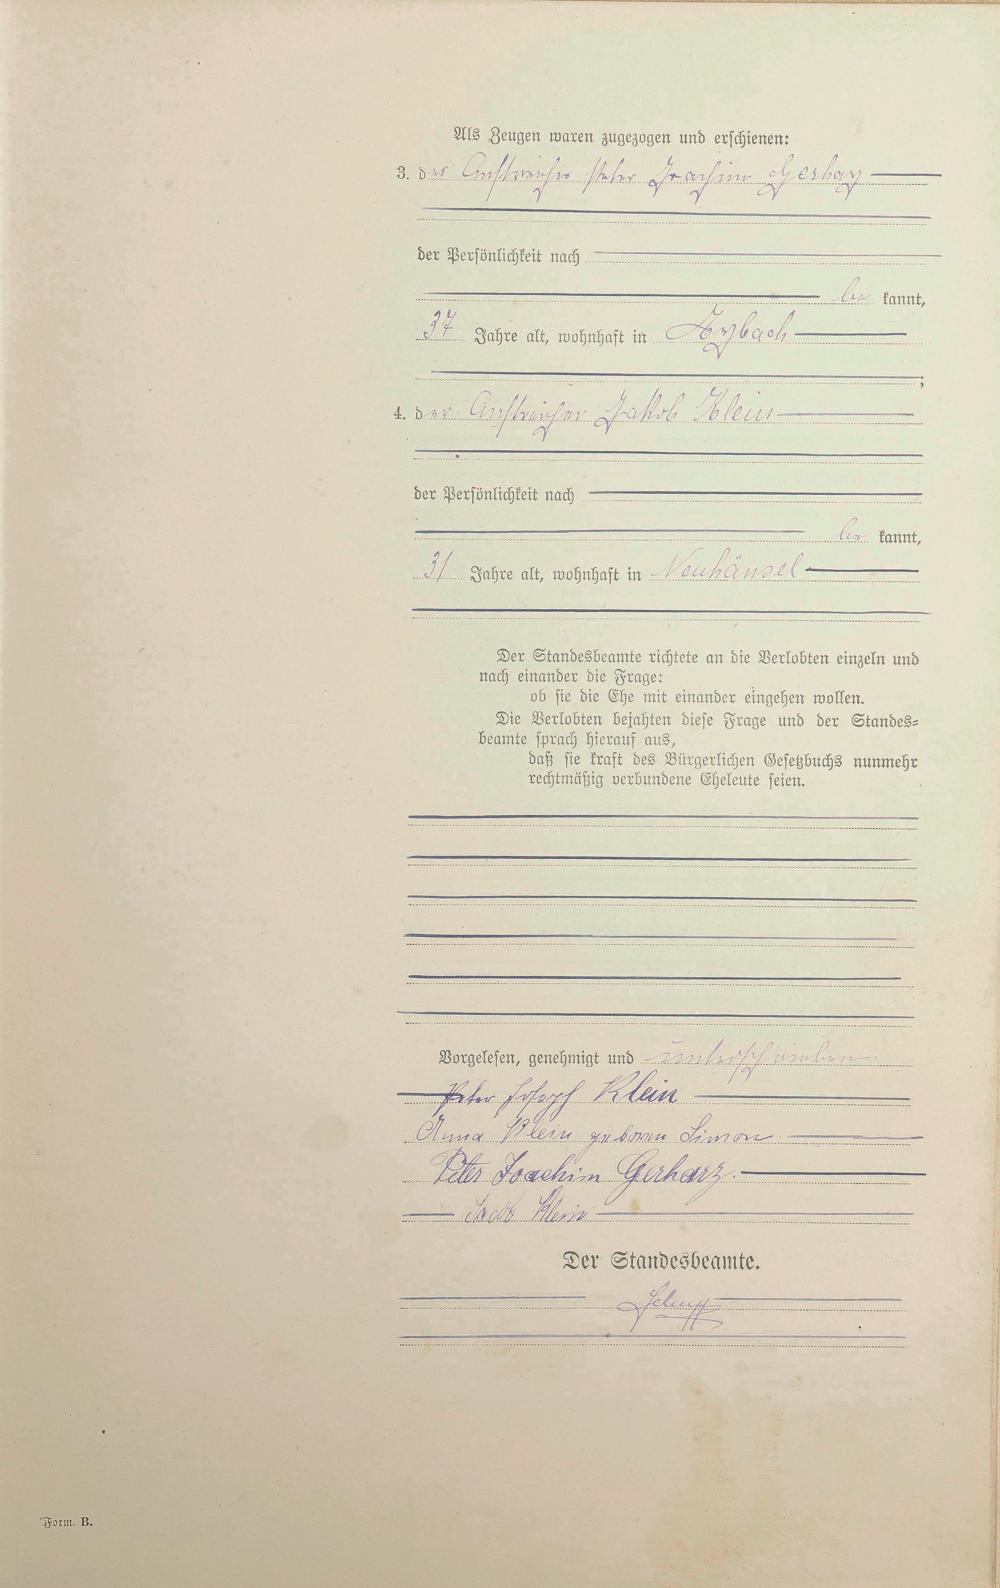 Als Zeugen waren zugezogen und erschienen:
3. der Anstreicher Peter Joachim Gerharz
der Persönlichkeit nach
be kannt,
37 Jahre alt, wohnhaft in Arzbach
;
4. der Anstreicher Jakob Klein
der Persönlichkeit nach
be kannt,
31 Jahre alt, wohnhaft in Neuhäusel
Der Standesbeamte richtete an die Verlobten einzeln und
nach einander die Frage:
ob sie die Ehe mit einander eingehen wollen.
Die Verlobten bejahten diese Frage und der Standes=
beamte sprach hierauf aus,
daß sie kraft des Bürgerlichen Gesetzbuchs nunmehr
rechtmäßig verbundene Eheleute seien.
Vorgelesen, genehmigt und unterschrieben.
Peter Joseph Klein
Anna Klein geboren Simon
Peter Joachim Gerharz.
Jacob Klein
Der Standesbeamte.
Form. B.